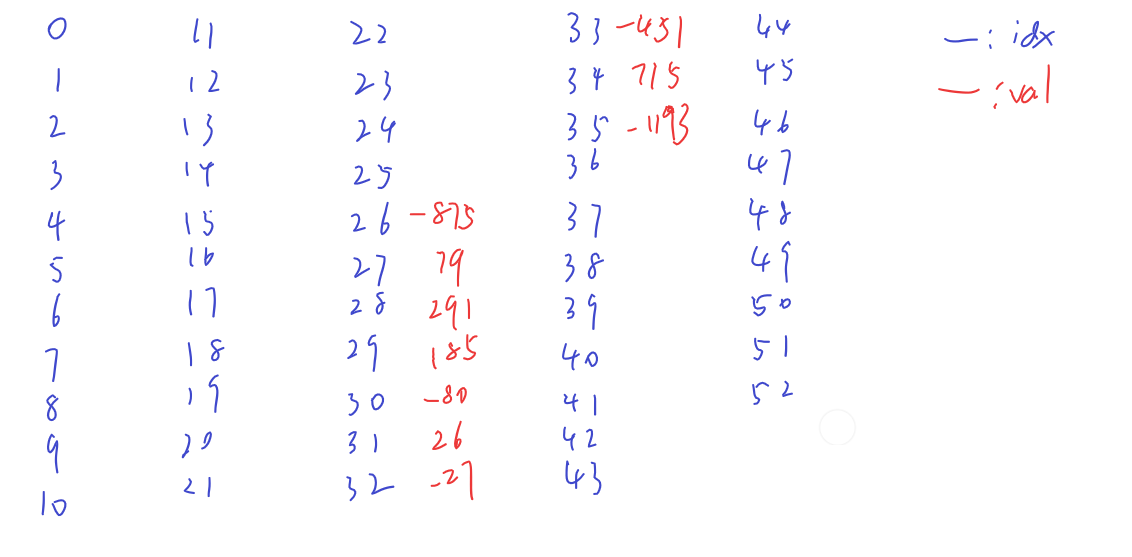 0 11 22 33 -451 44 —: idx
1 12 23 34 715 45 —: val
2 13 24 35 -1193 46
3 14 25 36 47
4 15 26 -875 37 48
5 16 27 79 38 49
6 17 28 291 39 50
7 18 29 185 40 51
8 19 30 -80 41 52
9 20 31 26 42
10 21 32 -27 43